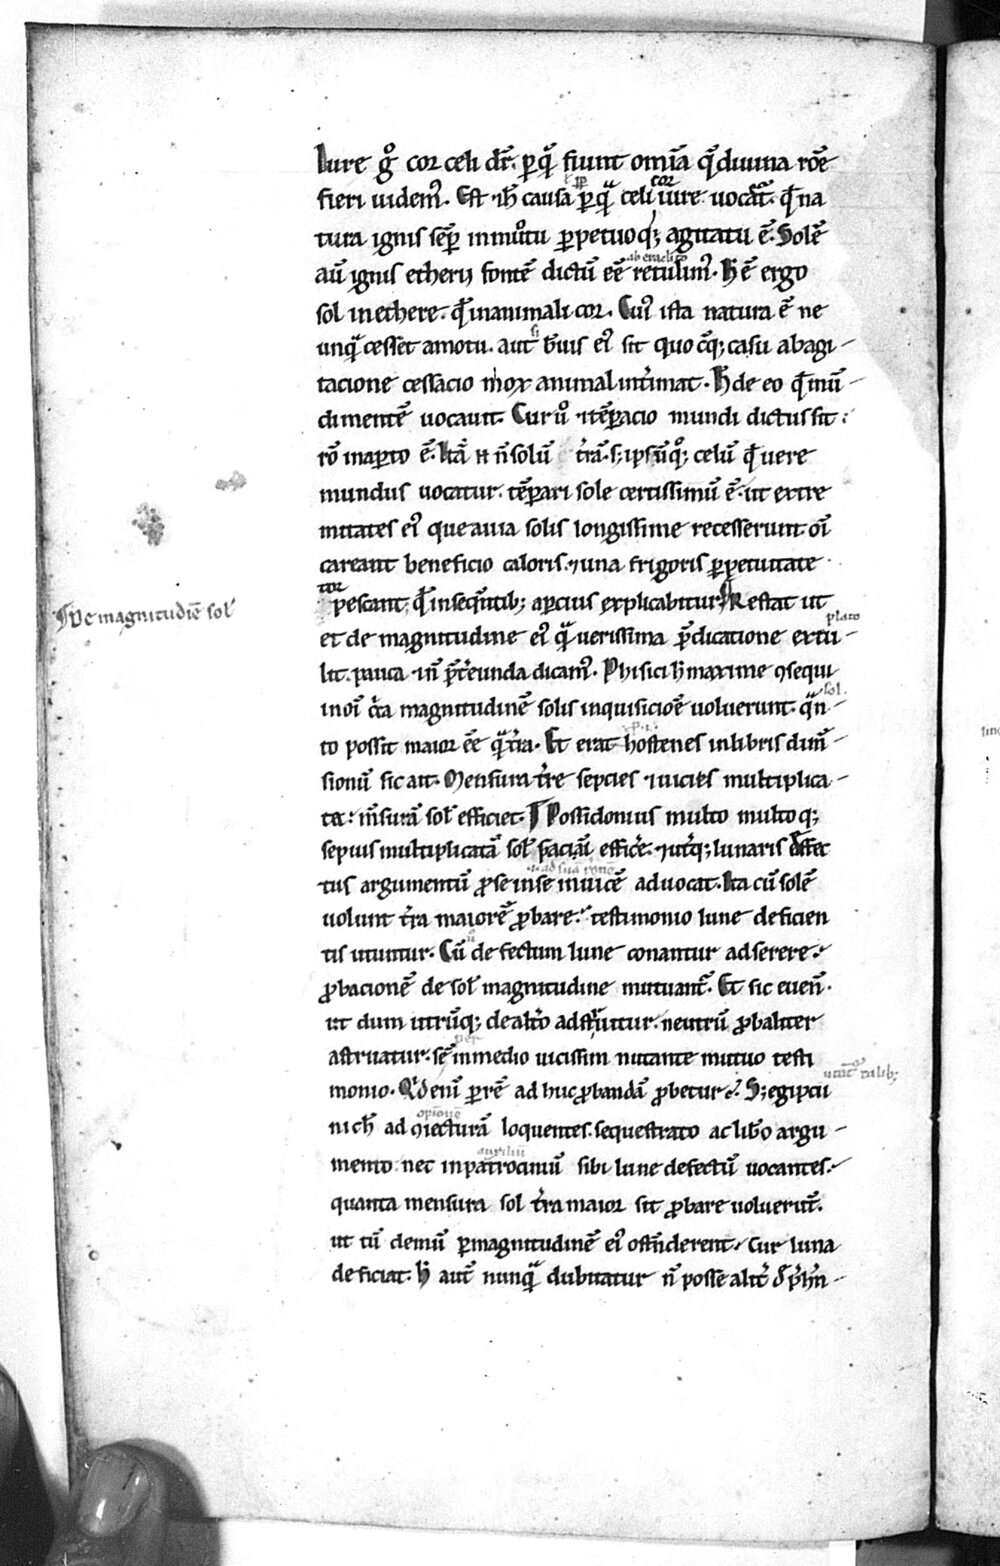 Iure g̊ cor celi dr̄. ꝑ qᷓ fiunt omīa q̄ diuina rōe
fieri uidemꝰ. Est ⁊ h̄ causa ꝑ qᷓ celi cor iure uocat̄. qđ na
tura ignis sēꝑ in mūtu ꝑpetuoqꝫ agitatu ē. Solē
aū ignis etherii fontē dictū eē ab eraclito retulimꝰ. H̄ ē ergo
sol in ethere. qđ in animali cor. Cuiꝰ ista natura ē ne
unqᷓ cesset a motu. aut si b̄uis eiꝰ sit quocūqꝫ casu ab agi
tacione cessacio mox animal int̄imat. H̄ de eo qđ mū
di mentē uocauit. Cur ů ⁊ tēꝑacio mundi dictus sit:
rō in aꝑto ē. Ita ⁊ n̄ solū t̄rā. sꝫ ipsūqꝫ celū qđ uere
mundus uocatur. tēꝑari sole certissimū ē. ut extre
mitates eiꝰ que a uia solis longissime recesserunt oī
careant beneficio caloris. ⁊ una frigoris ꝑpetuitate
tor
pescant; qđ in seq̄ntibꝫ aꝑcius explicabitur. Restat ut
¶ De magnitudīe sol̄
et de magnitudine eiꝰ qᷓ uerissima p̄dicatione extu
plato
lit. pauca ⁊ n̄ p̄t̄eunda dicamꝰ. Phisici h̄ maxime ꝯsequi
in oī c̄ca magnitudinē solis inquisicioē uoluerunt. qᷓn
sol.
to possit maior eē qᷓ t̄ra. Et erathostenes in libris dim̄
sionū sic ait. Mensura t̄re sepcies ⁊ uicies multiplica
ta: m̄surā sol̄ efficiet. ¶ Possidonius multo multoqꝫ
sepius multiplicatā sol̄ spaciū effic̄e. ⁊ ut̄qꝫ lunaris defec
tus argumentū ꝓ se in se inuicē aduocat. Ita cū solē
uolunt t̄ra maiorē ꝓbare. testimonio lune deficien
tis utuntur. Cū defectum lune conantur adserere.
ꝓbacionē de sol̄ magnitudine mutuant̄. Et sic euen̄.
ut dum utrūqꝫ de alt̄o adstruitur. neutrū ꝓbabiliter
astruatur. sē in medio uicissim nutante mutuo testi
monio. Qđ enī ꝑ rē adhuc ꝓbandā ꝓbetur? Sꝫ egipcii
nich̄ ad ꝯiecturā loquentes. sequestrato ac lib̄o argu
opionē
mento nec in patrociniū sibi lune defectū uocantes.
auxiliū
quanta mensura sol t̄ra maior sit ꝓbare uoluerūt.
ut tū demū ꝑ magnitudinē eiꝰ ostn̄derent. cur luna
deficiat. H̄ aut̄ nunqᷓ dubitatur n̄ posse alit̄ dep̄hn̄